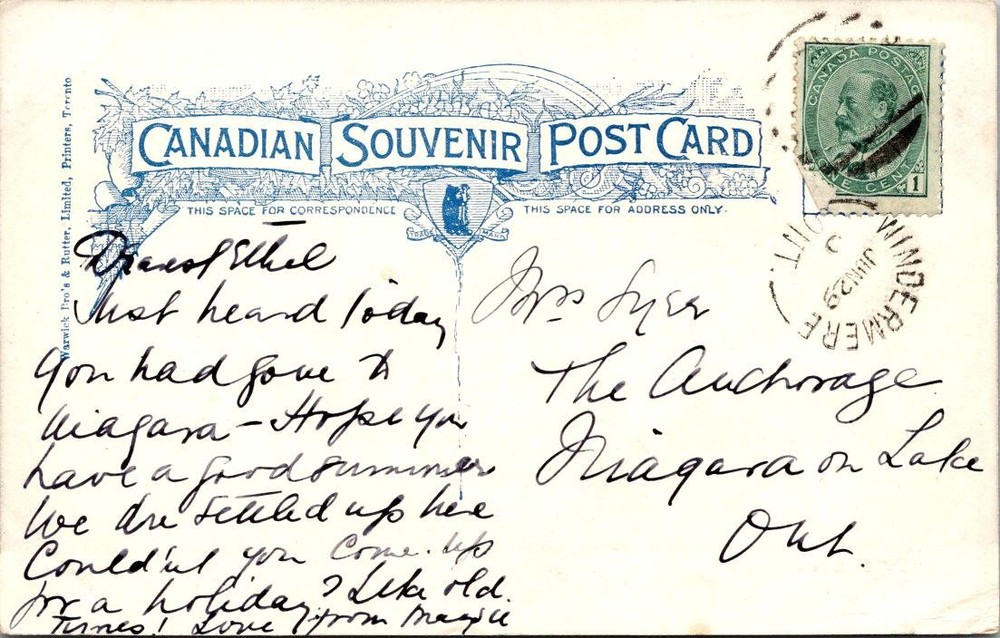 Warwick Bro's & Rutter, Limited, Printers, Toronto
CANADIAN SOUVENIR POST CARD
THIS SPACE FOR CORRESPONDENCE
THIS SPACE FOR ADDRESS ONLY.
TRADE MARK
CANADA POSTAGE
ONE CENT
1
WINDERMERE ONT.
JUN 29
Dearest Ethel
Just heard today
you had gone to
Niagara - Hope you
have a good summer
We are settled up here
Could'nt you come up
for a holiday? Like old
Times! Love from
Mrs
The Anchorage
Niagara on Lake
Ont.